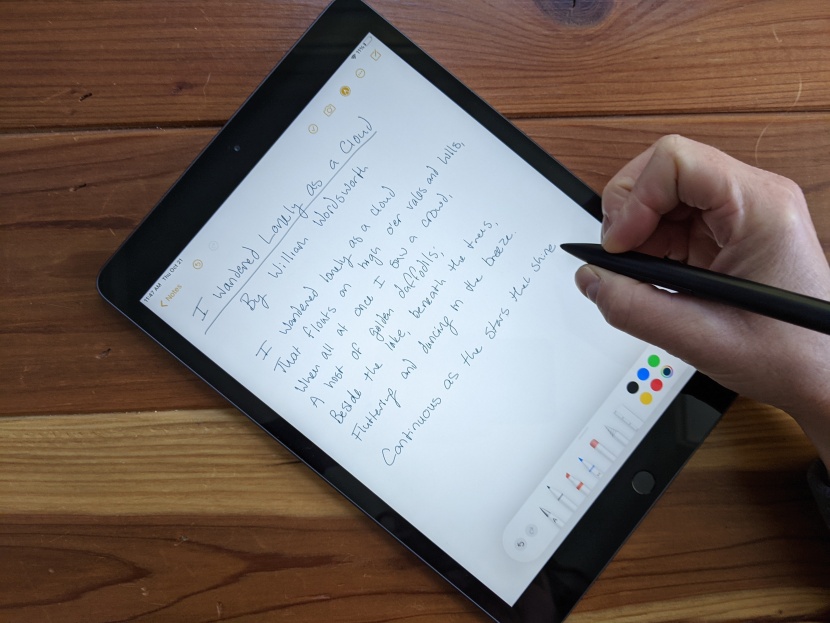 11:47 AM Thu Oct 21
Notes
I Wandered Lonely as a Cloud
By William Wordsworth
I wandered lonely as a cloud
That floats on high o'er vales and hills,
When all at once I saw a crowd,
A host of golden daffodils;
Beside the lake, beneath the trees,
Fluttering and dancing in the breeze.
Continuous as the stars that shine